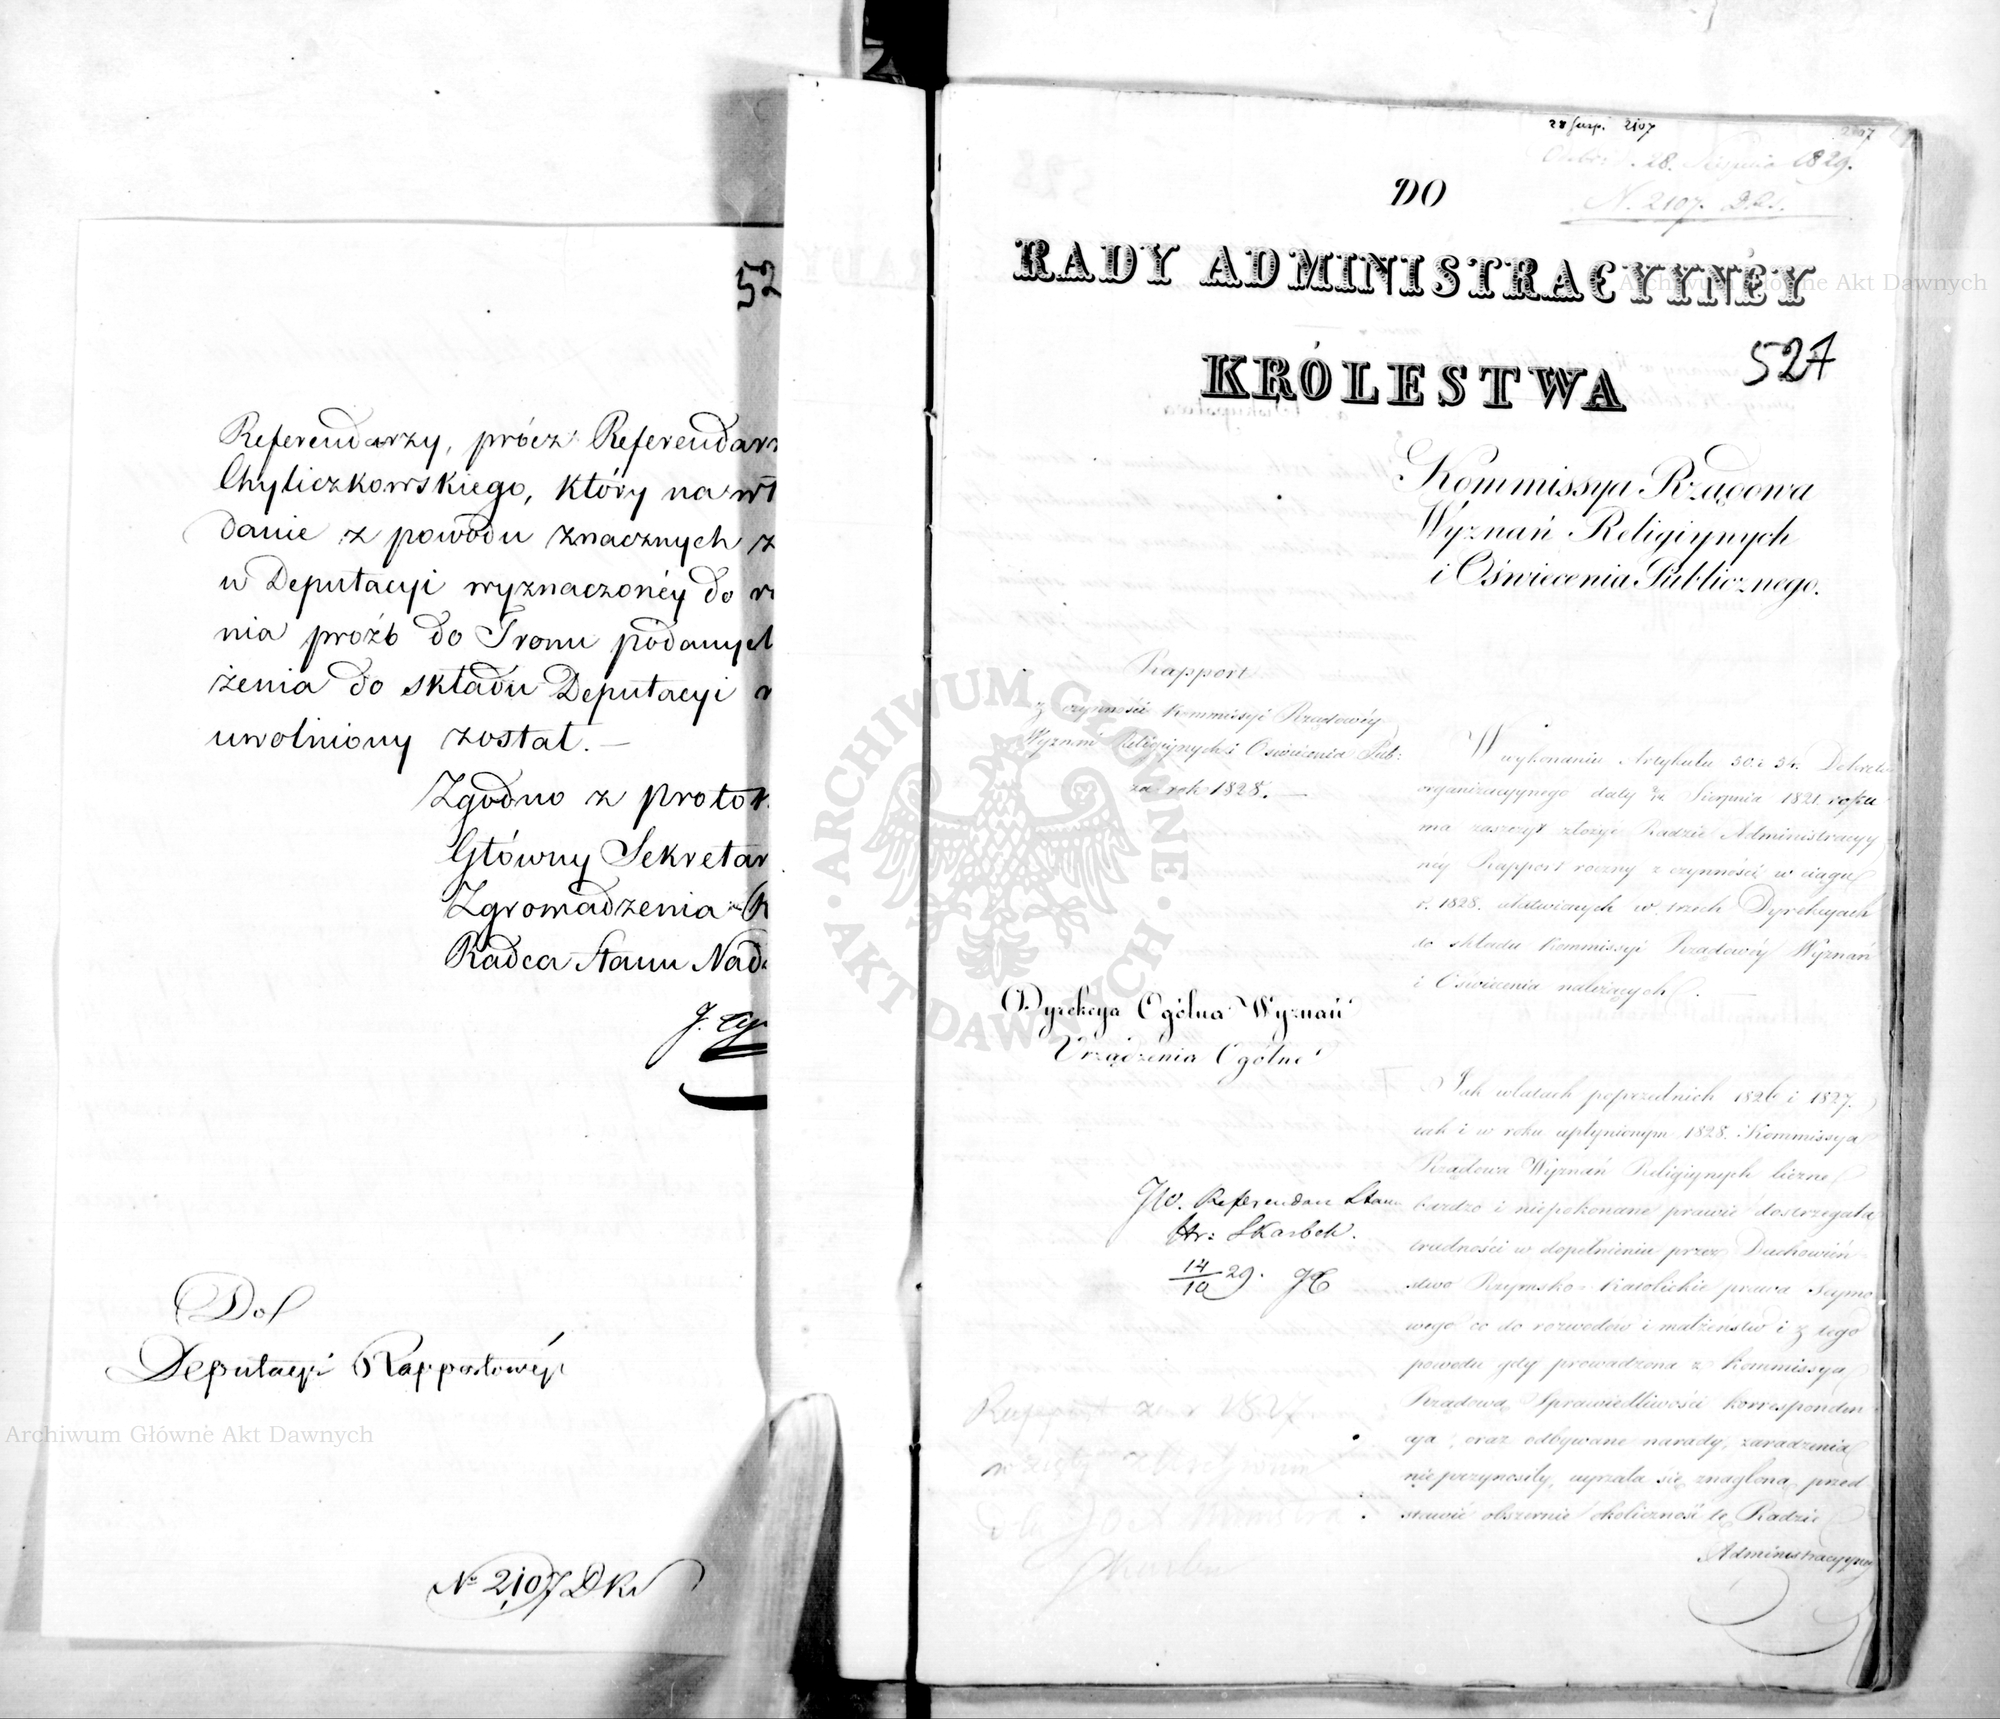 52
Referendarzy, prócz Referendarz
Chyliczkowskiego, który na wł
danie z powodu znacznych z
w Deputacyi wyznaczonéy do r
nia proźb do Tronu podanych
żenia do składu Deputacyi
uwolniony został. —
Zgodno z protok
Główny Sekretar
Zgromadzenia
Radca Stanu Nad
Do
Deputacyi Rapportowéy
No 2107 DKs
28 Sierp. 2107
2107
28. Sierpnia 1829.
N. 2107. D.Ks.
DO
RADY ADMINISTRACYYNÉY
KRÓLESTWA
527
Kommissya Rządowa
Wyznań Religiynych
i Oświecenia Publicznego.
Rapport
z czynności Kommissyi Rządowéy
Wyznań Religiynych i Oświecenia Pub:
za rok 1828. —
W wykonaniu Artykułu 30. i 34. Dekretu
organizacyynego daty Sierpnia 1821. roku
ma zaszczyt złożyć Radzie Administracyy
néy Rapport roczny z czynności w ciągu
r. 1828. ułatwionych w trzech Dyrekcyach
do składu Kommissyi Rządowéy Wyznań
i Oświecenia należących. —
Dyrekcya Ogólna Wyznań
Urządzenia Ogólne
Jak w latach poprzednich 1826 i 1827.
tak i w roku upłynionym 1828. Kommissya
Rządowa Wyznań Religiynych liczne
bardzo i niepokonane prawie dostrzegała
trudności w dopełnieniu przez Duchowień
stwo Rzymsko-Katolickie prawa Seymo
wego co do rozwodów i małżeństw i z tego
powodu gdy prowadzona z Kommissyą
Rządową Sprawiedliwości korresponden
cya, oraz odbywane narady, zaradzenia
nie przynosiły, uyrzała się znagloną przed
stawić obszernie okoliczność tę Radzie
Administracyyney
JW. Referendarz Stanu
Hr: Skarbek.
14/10 29.
Rapport za r 1827
wzięty z Archiwum
dla JO X. Ministra
Skarbu
Archiwum Główne Akt Dawnych
Archiwum Główne Akt Dawnych
ARCHIWUM GŁÓWNE
AKT DAWNYCH